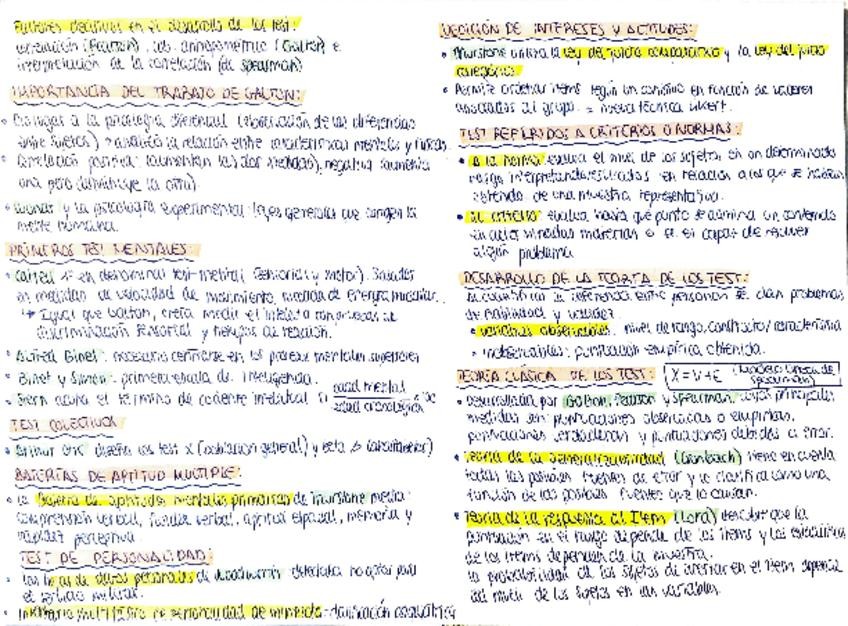 Factores decisivos en el desarrollo de los test:
correlación (Pearson), lab. antropométrico (Galton) e
interpretación de la correlación (de Spearman)
IMPORTANCIA DEL TRABAJO DE GALTON:
a la psicología diferencial (observación de las diferencias
entre sujetos) analizó la relación entre características mentales y físicas.
Correlación positiva (aumentan las dos medidas), negativa (aumenta
una pero disminuye la otra)
Wundt y la psicología experimental: leyes generales que
mente humana.
PRIMEROS TEST MENTALES:
Cattell 1º en denominar test mental (sensorial y motor). Basados
en medidas de velocidad de movimiento, medida de energía muscular.
Igual que Galton, creía medir el intelecto con pruebas de
discriminación sensorial y tiempos de reacción.
Alfred Binet: necesario centrarse en los procesos mentales superiores
Binet y Simon: primera escala de inteligencia.
Stern acuña el término de cociente intelectual edad mental
edad cronológica
TEST COLECTIVOS
Arthur Otis diseña los test α (población general) y beta (analfabetos)
BATERÍAS DE APTITUD MULTIPLE:
La batería de aptitudes mentales primarias de Thurstone medía:
comprensión verbal, fluidez verbal, aptitud espacial, memoria y
rapidez perceptiva.
TEST DE PERSONALIDAD:
Las hojas de datos personales de Woodworth: detectaba no aptos para
el servicio militar.
Inventario multifásico de personalidad de Minnesota: clasificación
MEDICIÓN DE INTERESES Y ACTITUDES:
Thurstone utiliza la ley del juicio comparativo y la ley del juicio
categórico
Permite ordenar items según un continuo en función de valores
asociados al grupo. = nueva técnica Likert.
TEST REFERIDOS A CRITERIOS O NORMAS:
A la norma evalúa el nivel de los sujetos en un determinado
rasgo interpretando resultados en relación a los que se habían
obtenido de una muestra representativa.
Al criterio evalúa hasta qué punto se domina un contenido
en determinadas materias o si es capaz de resolver
algún problema
DESARROLLO DE LA TEORÍA DE LOS TEST:
Al cuantificar la referencia entre personas se dan problemas
de fiabilidad y validez.
variables observables: nivel de rasgo, constructo/característica
inobservables: puntuación empírica obtenida.
TEORÍA CLÁSICA DE LOS TEST: X=V+E (Modelo lineal de
Spearman)
Desarrollada por Galton, Pearson y Spearman, cuyas principales
medidas son: puntuaciones observadas o empíricas,
puntuaciones verdaderas y puntuaciones debidas al error.
Teoría de la generalizabilidad (Cronbach) tiene en cuenta
todas las posibles fuentes de error y lo clarifica como una
función de las posibles fuentes que lo causan.
Teoría de la respuesta al Item (Lord) descubre que la
puntuación en el rasgo depende de los items y los estadísticos
de los items dependen de la muestra.
la probabilidad de los sujetos de acertar en el item depende
del nivel de los sujetos en las variables.